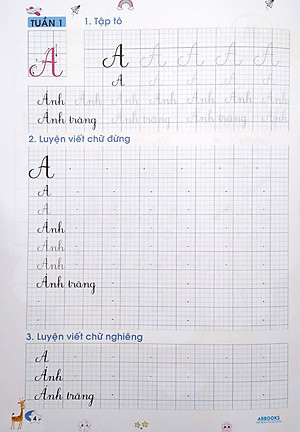 TUẦN 1
1. Tập tô
A A A A A A A
A A A A A A
Ánh Ánh Ánh Ánh Ánh Ánh Ánh
Ánh trăng Ánh trăng Ánh trăng
2. Luyện viết chữ đứng
A
A
A
Ánh
Ánh
Ánh
Ánh trăng
3. Luyện viết chữ nghiêng
A
Ánh
Ánh trăng
4
ABBOOKS